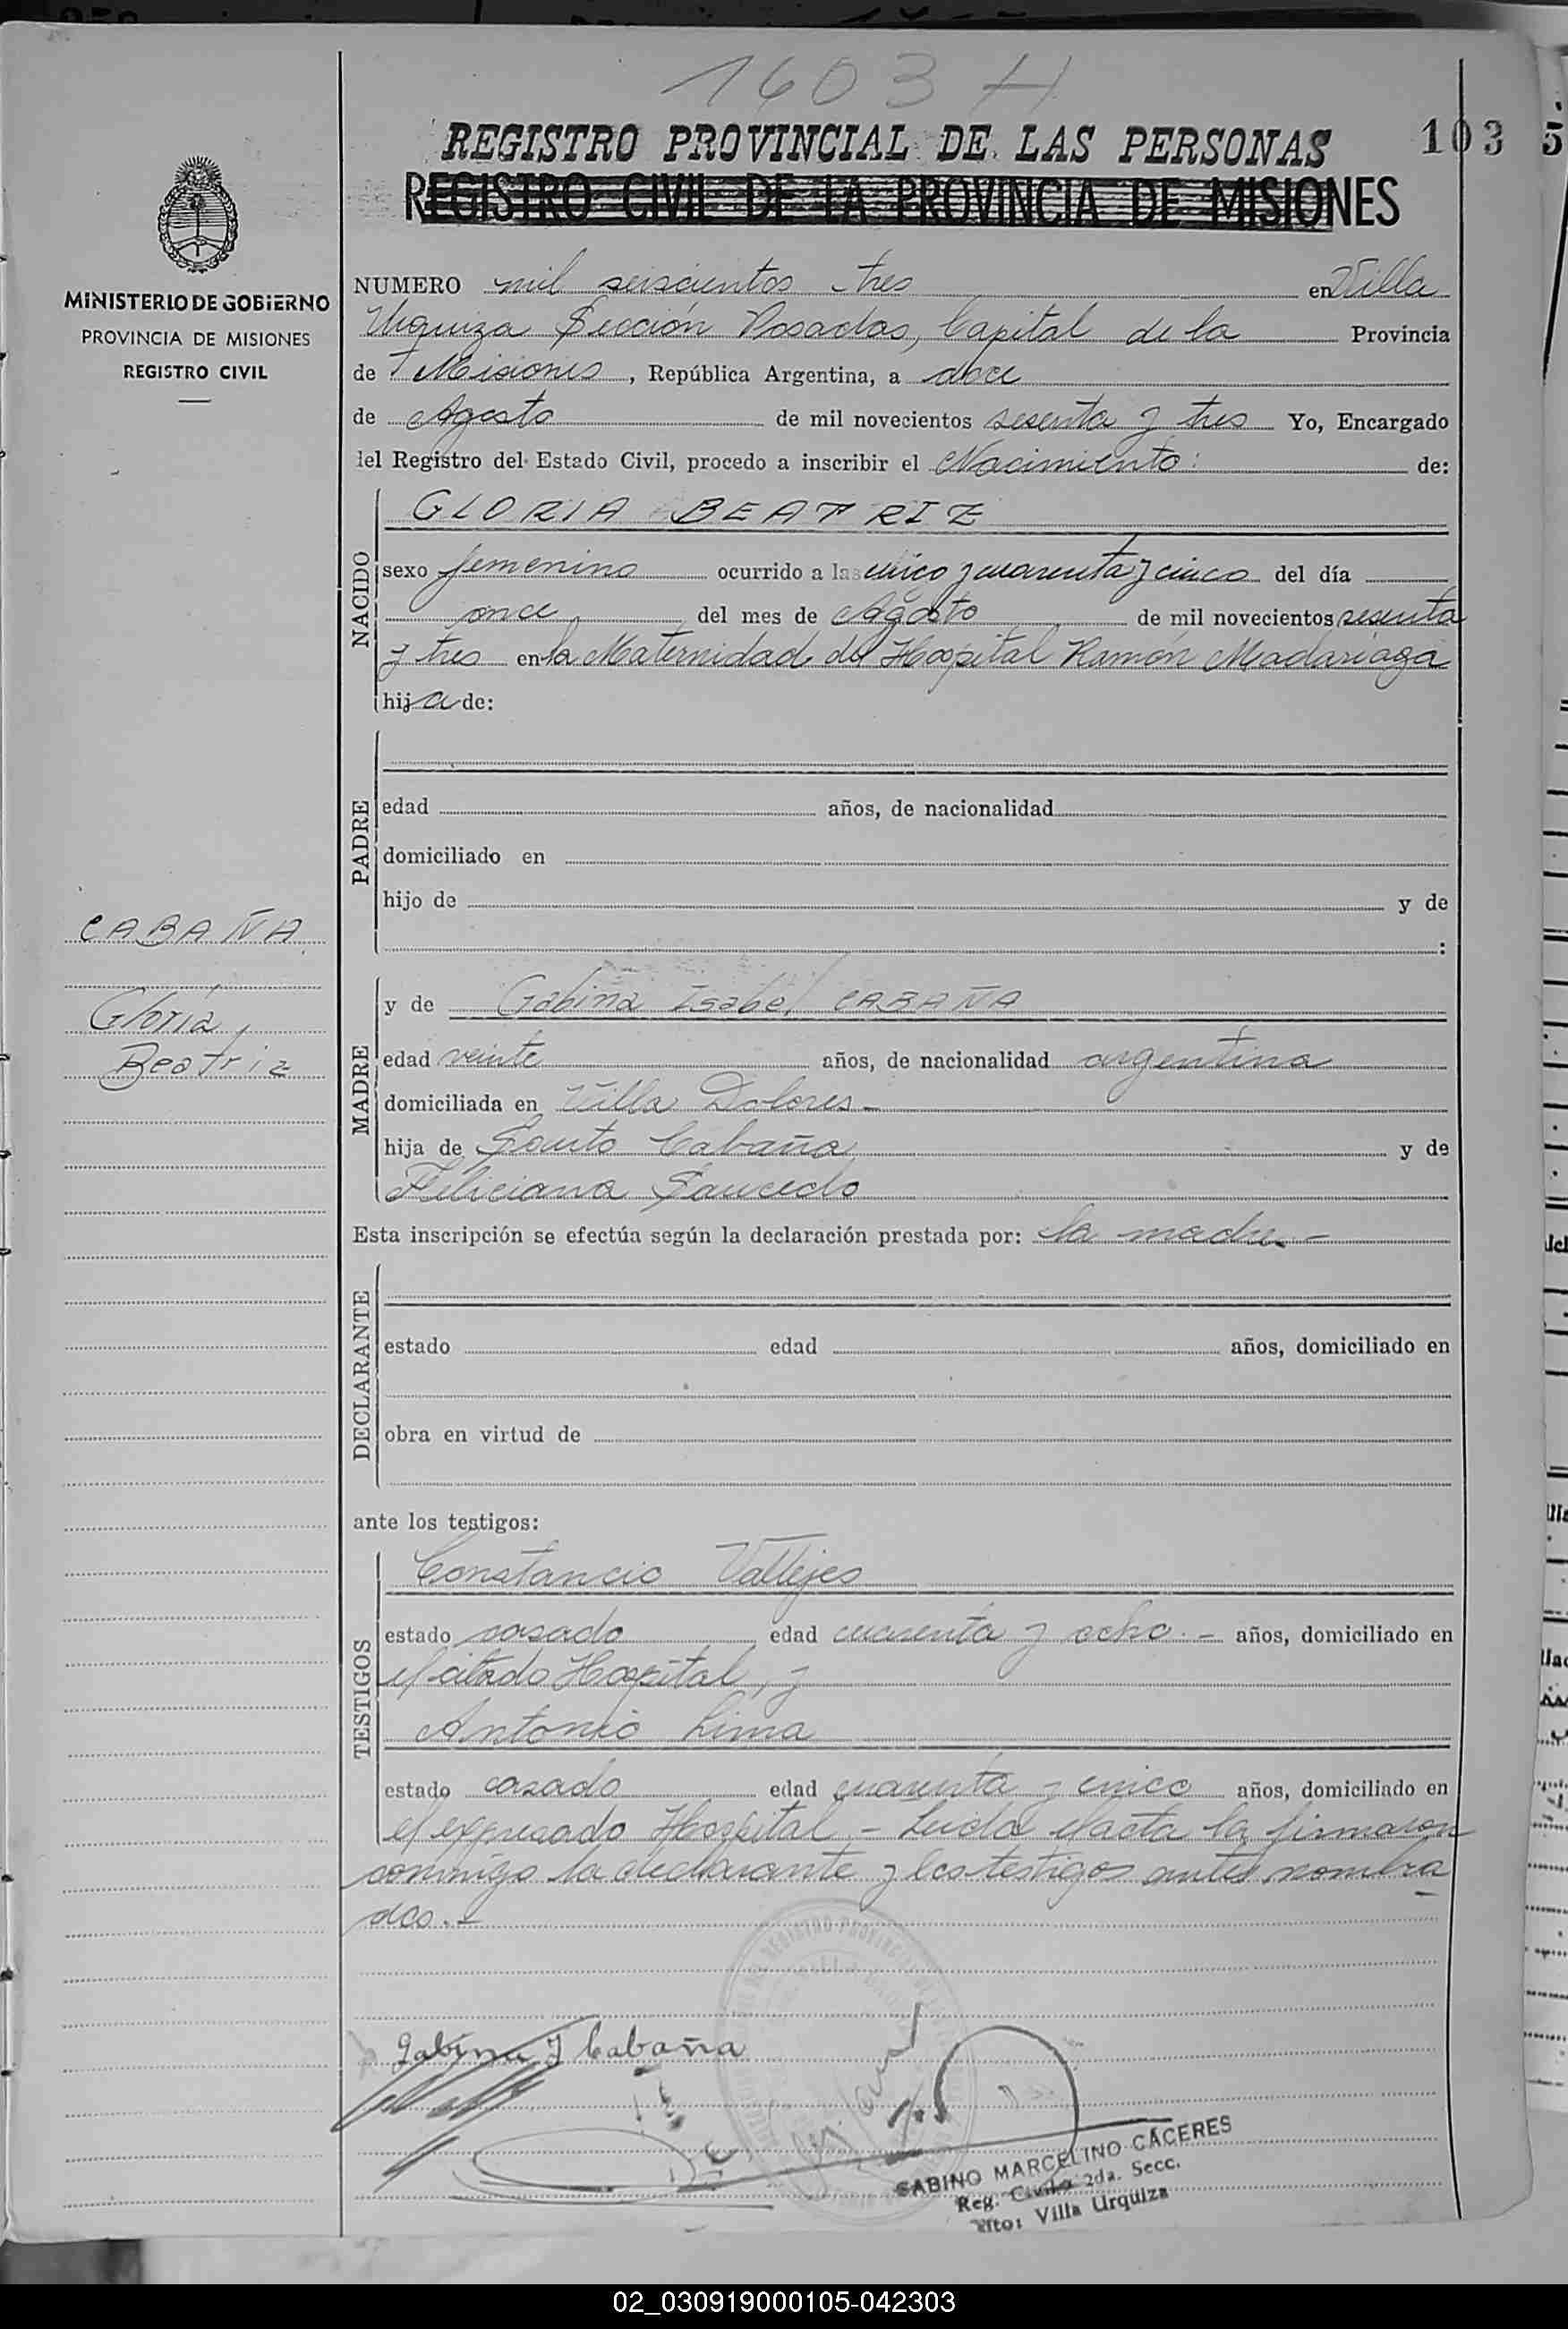 1603 H
REGISTRO PROVINCIAL DE LAS PERSONAS
103
5
REGISTRO CIVIL DE LA PROVINCIA DE MISIONES
MINISTERIO DE GOBIERNO
PROVINCIA DE MISIONES
REGISTRO CIVIL
NUMERO mil seiscientos tres en Villa
Urquiza Sección Posadas, Capital de la Provincia
de Misiones, República Argentina, a doce
de Agosto de mil novecientos sesenta y tres Yo, Encargado
del Registro del Estado Civil, procedo a inscribir el Nacimiento: de:
NACIDO
GLORIA BEATRIZ
sexo femenino ocurrido a las cinco y cuarenta y cinco del día
once del mes de Agosto de mil novecientos sesenta
y tres en la Maternidad del Hospital Ramón Madariaga
hija de:
PADRE
edad años, de nacionalidad
domiciliado en
hijo de y de
:
CABAÑA
Gloria
Beatriz
MADRE
y de Gabina Isabel CABAÑA
edad veinte años, de nacionalidad argentina
domiciliada en Villa Dolores.-
hija de Santo Cabaña y de
Feliciana Saucedo
Esta inscripción se efectúa según la declaración prestada por: la madre.-
DECLARANTE
estado edad años, domiciliado en
obra en virtud de
ante los testigos:
TESTIGOS
Constancio Vallejos
estado casado edad cuarenta y ocho.- años, domiciliado en
el citado Hospital, y
Antonio Lima
estado casado edad cuarenta y cinco años, domiciliado en
el expresado Hospital.- Leida el acta la firmaron
conmigo la declarante y los testigos antes nombra
dos.-
Gabina I Cabaña
SABINO MARCELINO CÁCERES
Reg. Civil 2da. Secc.
Villa Urquiza
02_030919000105-042303